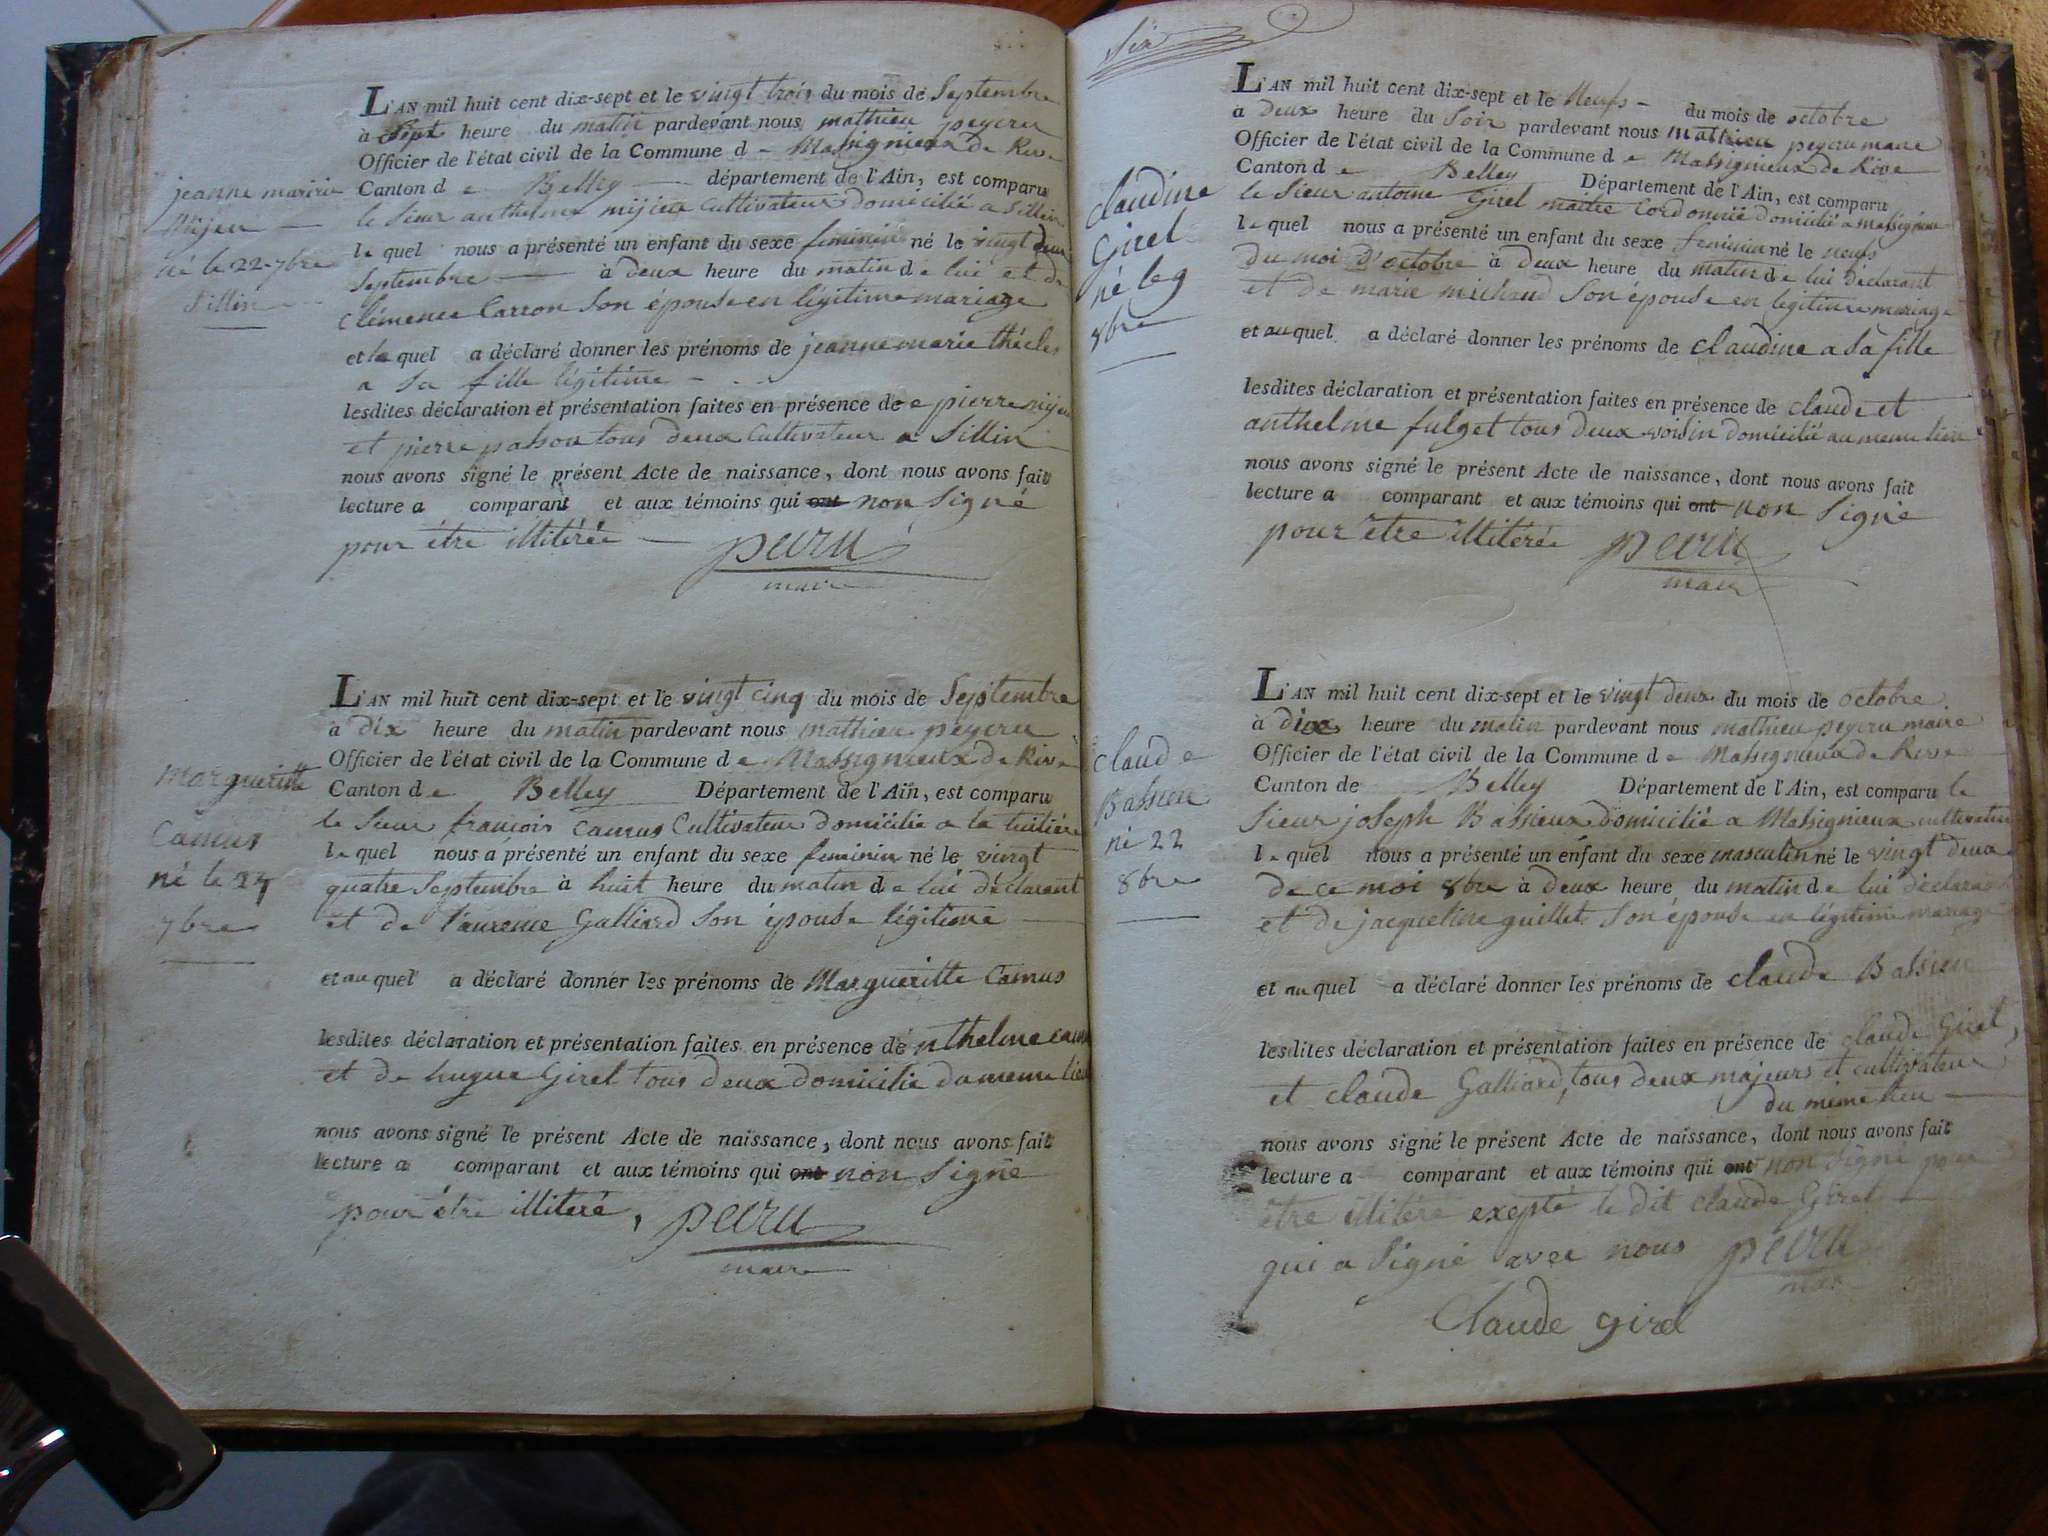 jeanne marie
mijeu
né le 22 7bre
Sillin
L'AN mil huit cent dix-sept et le vingt trois du mois de Septembre
à Sept heure du matin pardevant nous mathieu peyeru
Officier de l'état civil de la Commune de Massignieux de Rive
Canton de Belley département de l'Ain, est comparu
le Sieur anthelme mijeu Cultivateur Domicilié a Sillin
lequel nous a présenté un enfant du sexe feminin né le vingt deux
Septembre à deux heure du matin de lui et de
Clémence Carron Son épouse en légitime mariage
et lequel a déclaré donner les prénoms de jeanne marie thécles
a Sa fille légitime
lesdites déclaration et présentation faites en présence de pierre mijeu
et pierre passon tous deux Cultivateur a Sillin
nous avons signé le présent Acte de naissance, dont nous avons fait
lecture a comparant et aux témoins qui ont non Signé
pour être illitérée peiru
maire
Margueritte
Camus
né le 24
7bre
L'AN mil huit cent dix-sept et le vingt cinq du mois de Septembre
à dix heure du matin pardevant nous mathieu peyeru
Officier de l'état civil de la Commune de Massignieux de Rive
Canton de Belley Département de l'Ain, est comparu
le Sieur francois Camus Cultivateur domicilié a la tuiliére
lequel nous a présenté un enfant du sexe feminin né le vingt
quatre Septembre à huit heure du matin de lui déclarant
et de Laurence Galliard Son épouse légitime
et auquel a déclaré donner les prénoms de Margueritte Camus
lesdites déclaration et présentation faites en présence de nthelme camus
et de hugue Girel tous deux domicilie du meme lieu
nous avons signé le présent Acte de naissance, dont nous avons fait
lecture a comparant et aux témoins qui ont non Signe
pour être illiteré, peiru
maire
Six
Claudine
Girel
né le 9
8bre
L'AN mil huit cent dix-sept et le Neufs du mois de octobre
à Deux heure du Soir pardevant nous Mathieu peyeru maire
Officier de l'état civil de la Commune de Massignieux de Rive
Canton de Belley Département de l'Ain, est comparu
le Sieur antoine Girel maitre Cordonnié domicilié a Massignieux
lequel nous a présenté un enfant du sexe feminin né le neufs
du moi d'octobre à deux heure du matin de lui déclarant
et de marie michaud Son épouse en légitime mariage
et auquel a déclaré donner les prénoms de Claudine a Sa fille
lesdites déclaration et présentation faites en présence de claude et
anthelme fulget tous deux voisin domicilié au meme lieu
nous avons signé le présent Acte de naissance, dont nous avons fait
lecture a comparant et aux témoins qui ont non Signé
pour être illitérée peiru
maire
Claude
Bassieu
né 22
8bre
L'AN mil huit cent dix-sept et le vingt deux du mois de octobre
à dix heure du matin pardevant nous mathieu peyeru maire
Officier de l'état civil de la Commune de Massignieux de Rive
Canton de Belley Département de l'Ain, est comparu le
Sieur joseph Bassieux domicilié a Massignieux cultivateur
lequel nous a présenté un enfant du sexe masculin né le vingt deux
de ce moi 8bre à deux heure du matin de lui déclarant
et de jacqueline guillet Son épouse en légitime mariage
et auquel a déclaré donner les prénoms de claude Bassieu
lesdites déclaration et présentation faites en présence de claude Girel,
et claude Galliard, tous deux majeurs et cultivateur
du même lieu
nous avons signé le présent Acte de naissance, dont nous avons fait
lecture a comparant et aux témoins qui ont non Signé pour
être illitéré exepté le dit claude Girel
qui a Signé avec nous peiru
maire
Claude girel